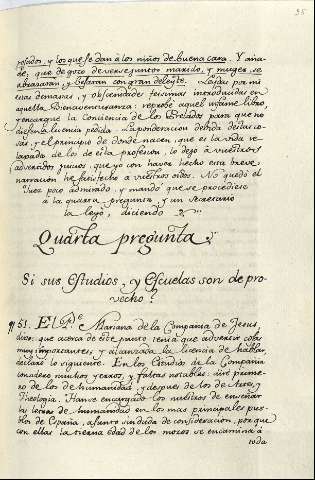 35
posados, y los que se dan à los niños de buena cara. Y aña-
de; que de gozo de verse juntos marido, y muger, se
abrazaran, y besaran con gran deleyte. Leidas por mi
estas demasias, y obscenidades introducidas en
aquella Bienaventuranza: reprobè aquel infame libro,
y encarguè la Conciencia de los Prelados para que no
diesen la licencia pedida. La ponderacion debida de tas co-
sas, y el principio de donde nacen, que es la vida re-
lajada de los de esta profesion, lo dejo à vuestros
advertidos juicios, que yo con haver hecho esta breve
narracion he satisfecho à vuestros oidos. No quedò el
Juez poco admirado, y mandò que se procediese
à la quarta pregunta, y un Secretario
la leyò, diciendo
Quarta pregunta
Si sus Estudios, y Escuelas son de pro-
vecho?
51. El Pe. Mariana de la Compañia de Jesus,
dijo: que acerca de este punto tenia que advertir cosas
muy importantes, y alcanzada la licencia de hablar,
declarò lo siguiente. En los Estudios de la Compañia
considero muchos yerros, y faltas notables: asi prime-
ro de los de humanidad, y despues de los de Artes, y
Theologia. Hanse encargado los nuestros de enseñar
las letras de humanidad en los mas principales pue-
blos de España, asunto sin duda de consideracion, por que
con ellas la tierna edad de los mozos se encamina à
toda